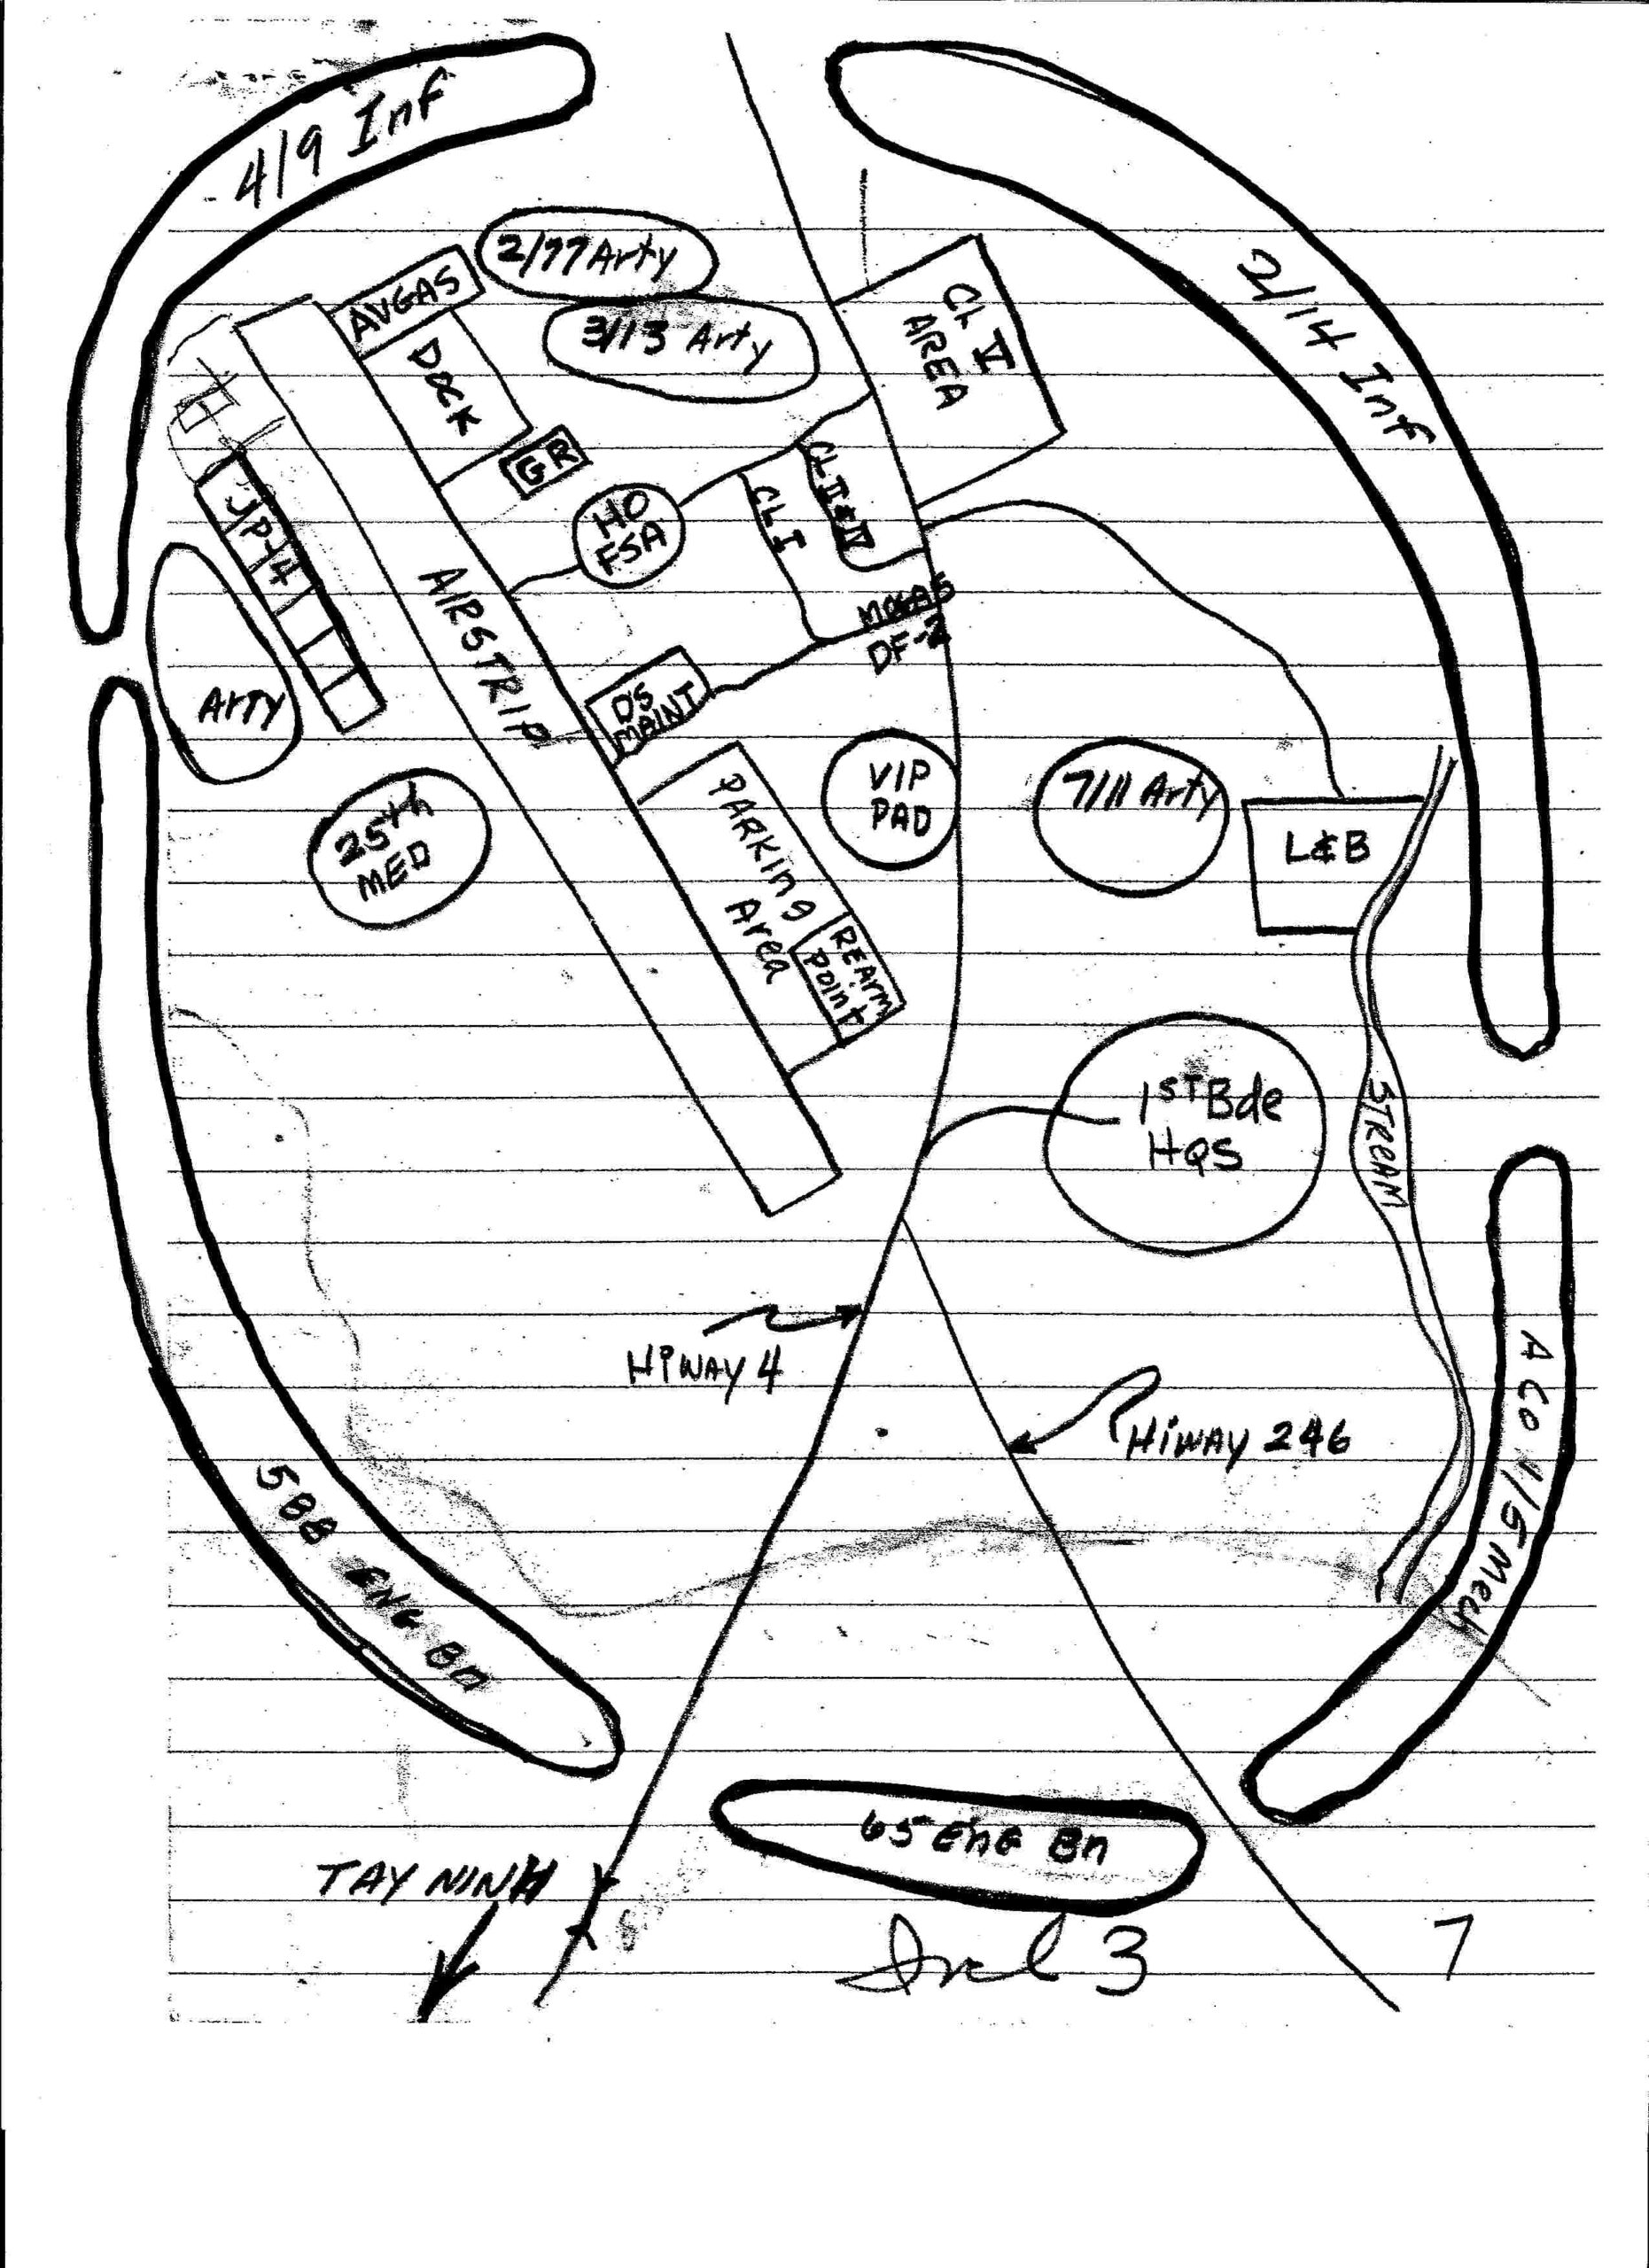 4/9 Inf
2/77 Arty
AVGAS
3/13 Arty
CL V
AREA
2/14 Inf
DOCK
GR
HQ
FSA
CL I
CL II & IV
JP-4
AIRSTRIP
MOGAS
DF-2
Arty
DS
MAINT
25th
MED
PARKING
Area
VIP
PAD
7/11 Arty
L&B
REARM
Point
1ST Bde
HQS
STREAM
HiWAY 4
HiWAY 246
A Co 1/5 Mech
588 ENG Bn
65 ENG Bn
TAY NINH
Incl 3
7